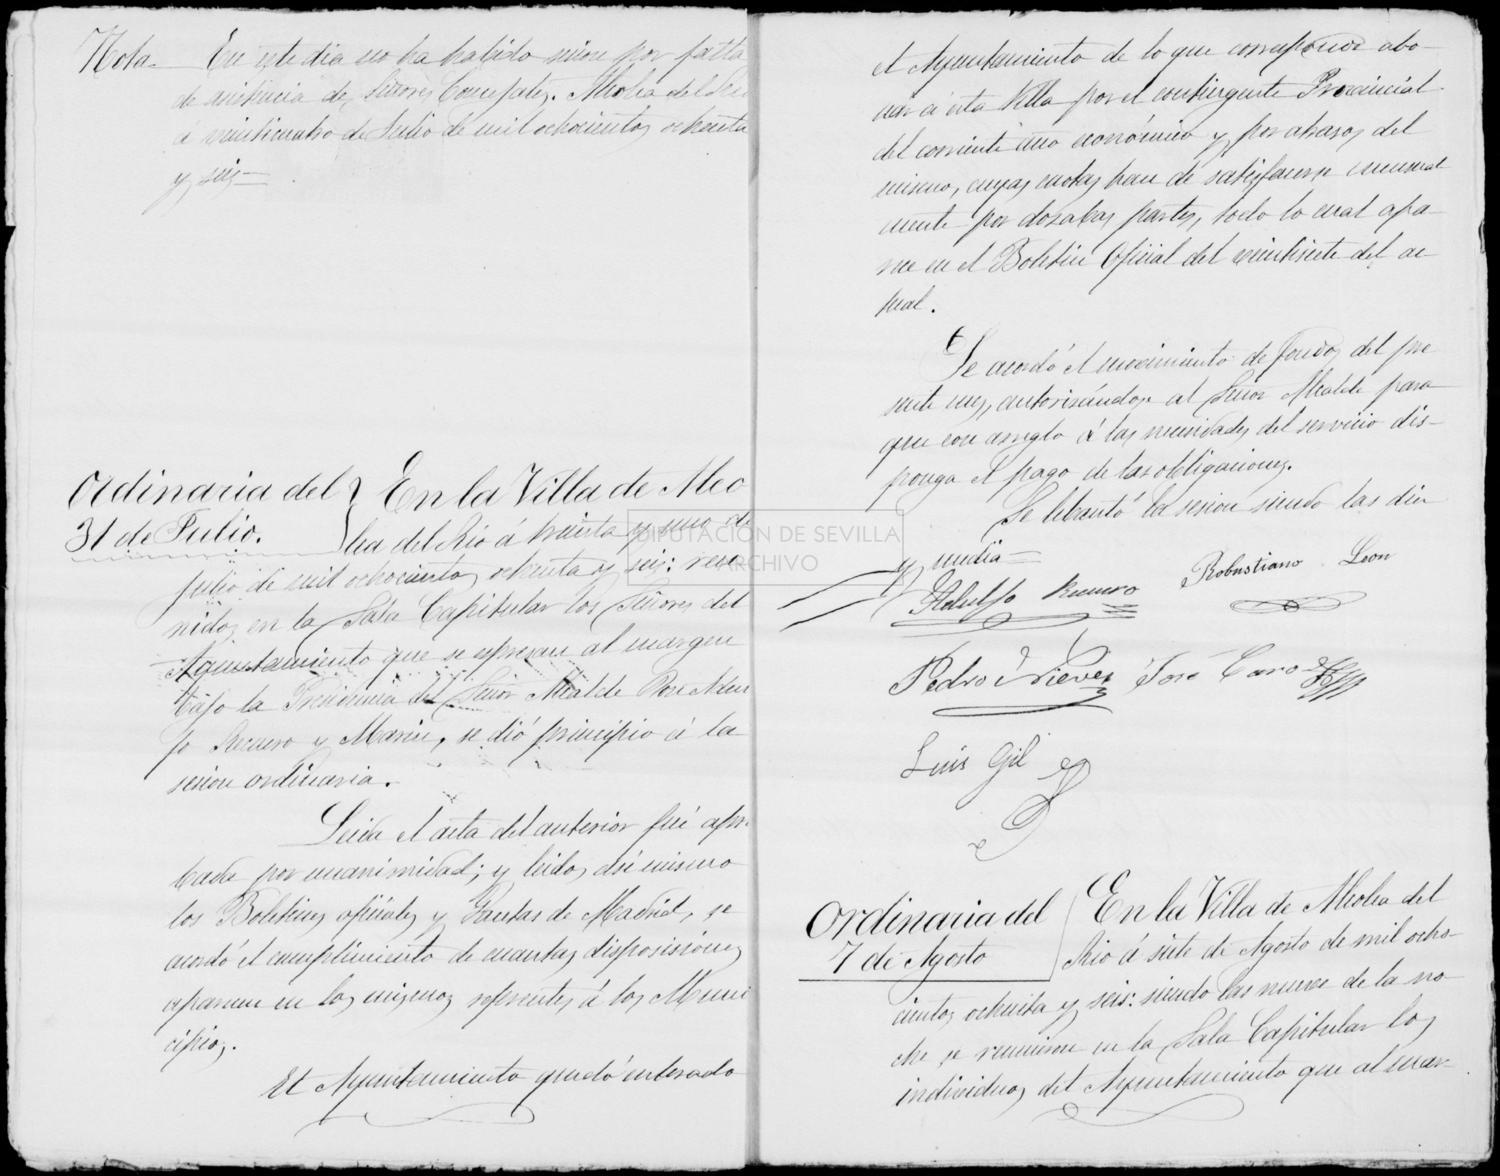 Nota. En este dia no ha habido sesion por falta
de asistencia de Señores Concejales. Alcolea del Rio
a veinticuatro de Julio de mil ochocientos ochenta
y seis=
Ordinaria del
31 de Julio.
En la Villa de Alco
lea del Rio á treinta y uno de
julio de mil ochocientos ochenta y seis: reu
nidos en la Sala Capitular los Señores del
Ayuntamiento que se espresan al margen
bajo la Presidencia del Señor Alcalde
Romero y Marin, se dió principio á la
sesion ordinaria.
Leida el acta del anterior fué apro
bada por unanimidad; y leidos asi mismo
los Boletines oficiales y Gacetas de Madrid, se
acordó el cumplimiento de cuantas disposiciones
aparecen en los mismos referentes á los Muni
cipios.
El Ayuntamiento quedó enterado
el Ayuntamiento de lo que corresponde abo-
nar á esta Villa por el contingente Provincial
del corriente año económico y por atrasos del
mismo, cuyas cuotas han de satisfacerse mensual
mente por dozabas partes, todo lo cual apa-
rece en el Boletin Oficial del veintisiete del ac
tual.
Se acordó el movimiento de fondos del pre
sente mes, autorizándose al Señor Alcalde para
que con arreglo á las necesidades del servicio dis-
ponga el pago de las obligaciones.
Se lebantó la sesion siendo las diez
y media=
Robustiano Leon
Adolfo Romero
Pedro Nieves José Caro
Luis Gil
Ordinaria del
7 de Agosto
En la Villa de Alcolea del
Rio á siete de Agosto de mil ocho-
cientos ochenta y seis: siendo las nueve de la no
che se reunieron en la Sala Capitular los
individuos del Ayuntamiento que al mar-
DIPUTACIÓN DE SEVILLA
ARCHIVO